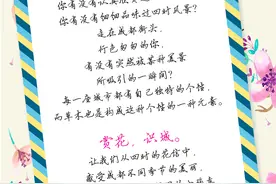 你有没有认真欣赏
你有没有细细品味过四时风景?
走在成都街头,
行色匆匆的你,
有没有突然被某种美景
所吸引的一瞬间?
每一座城市都有自己独特的个性,
而草木也是构成这种个性的一种元素。
赏花,识城。
让我们从四时的花信中,
感受成都不同季节的美丽,